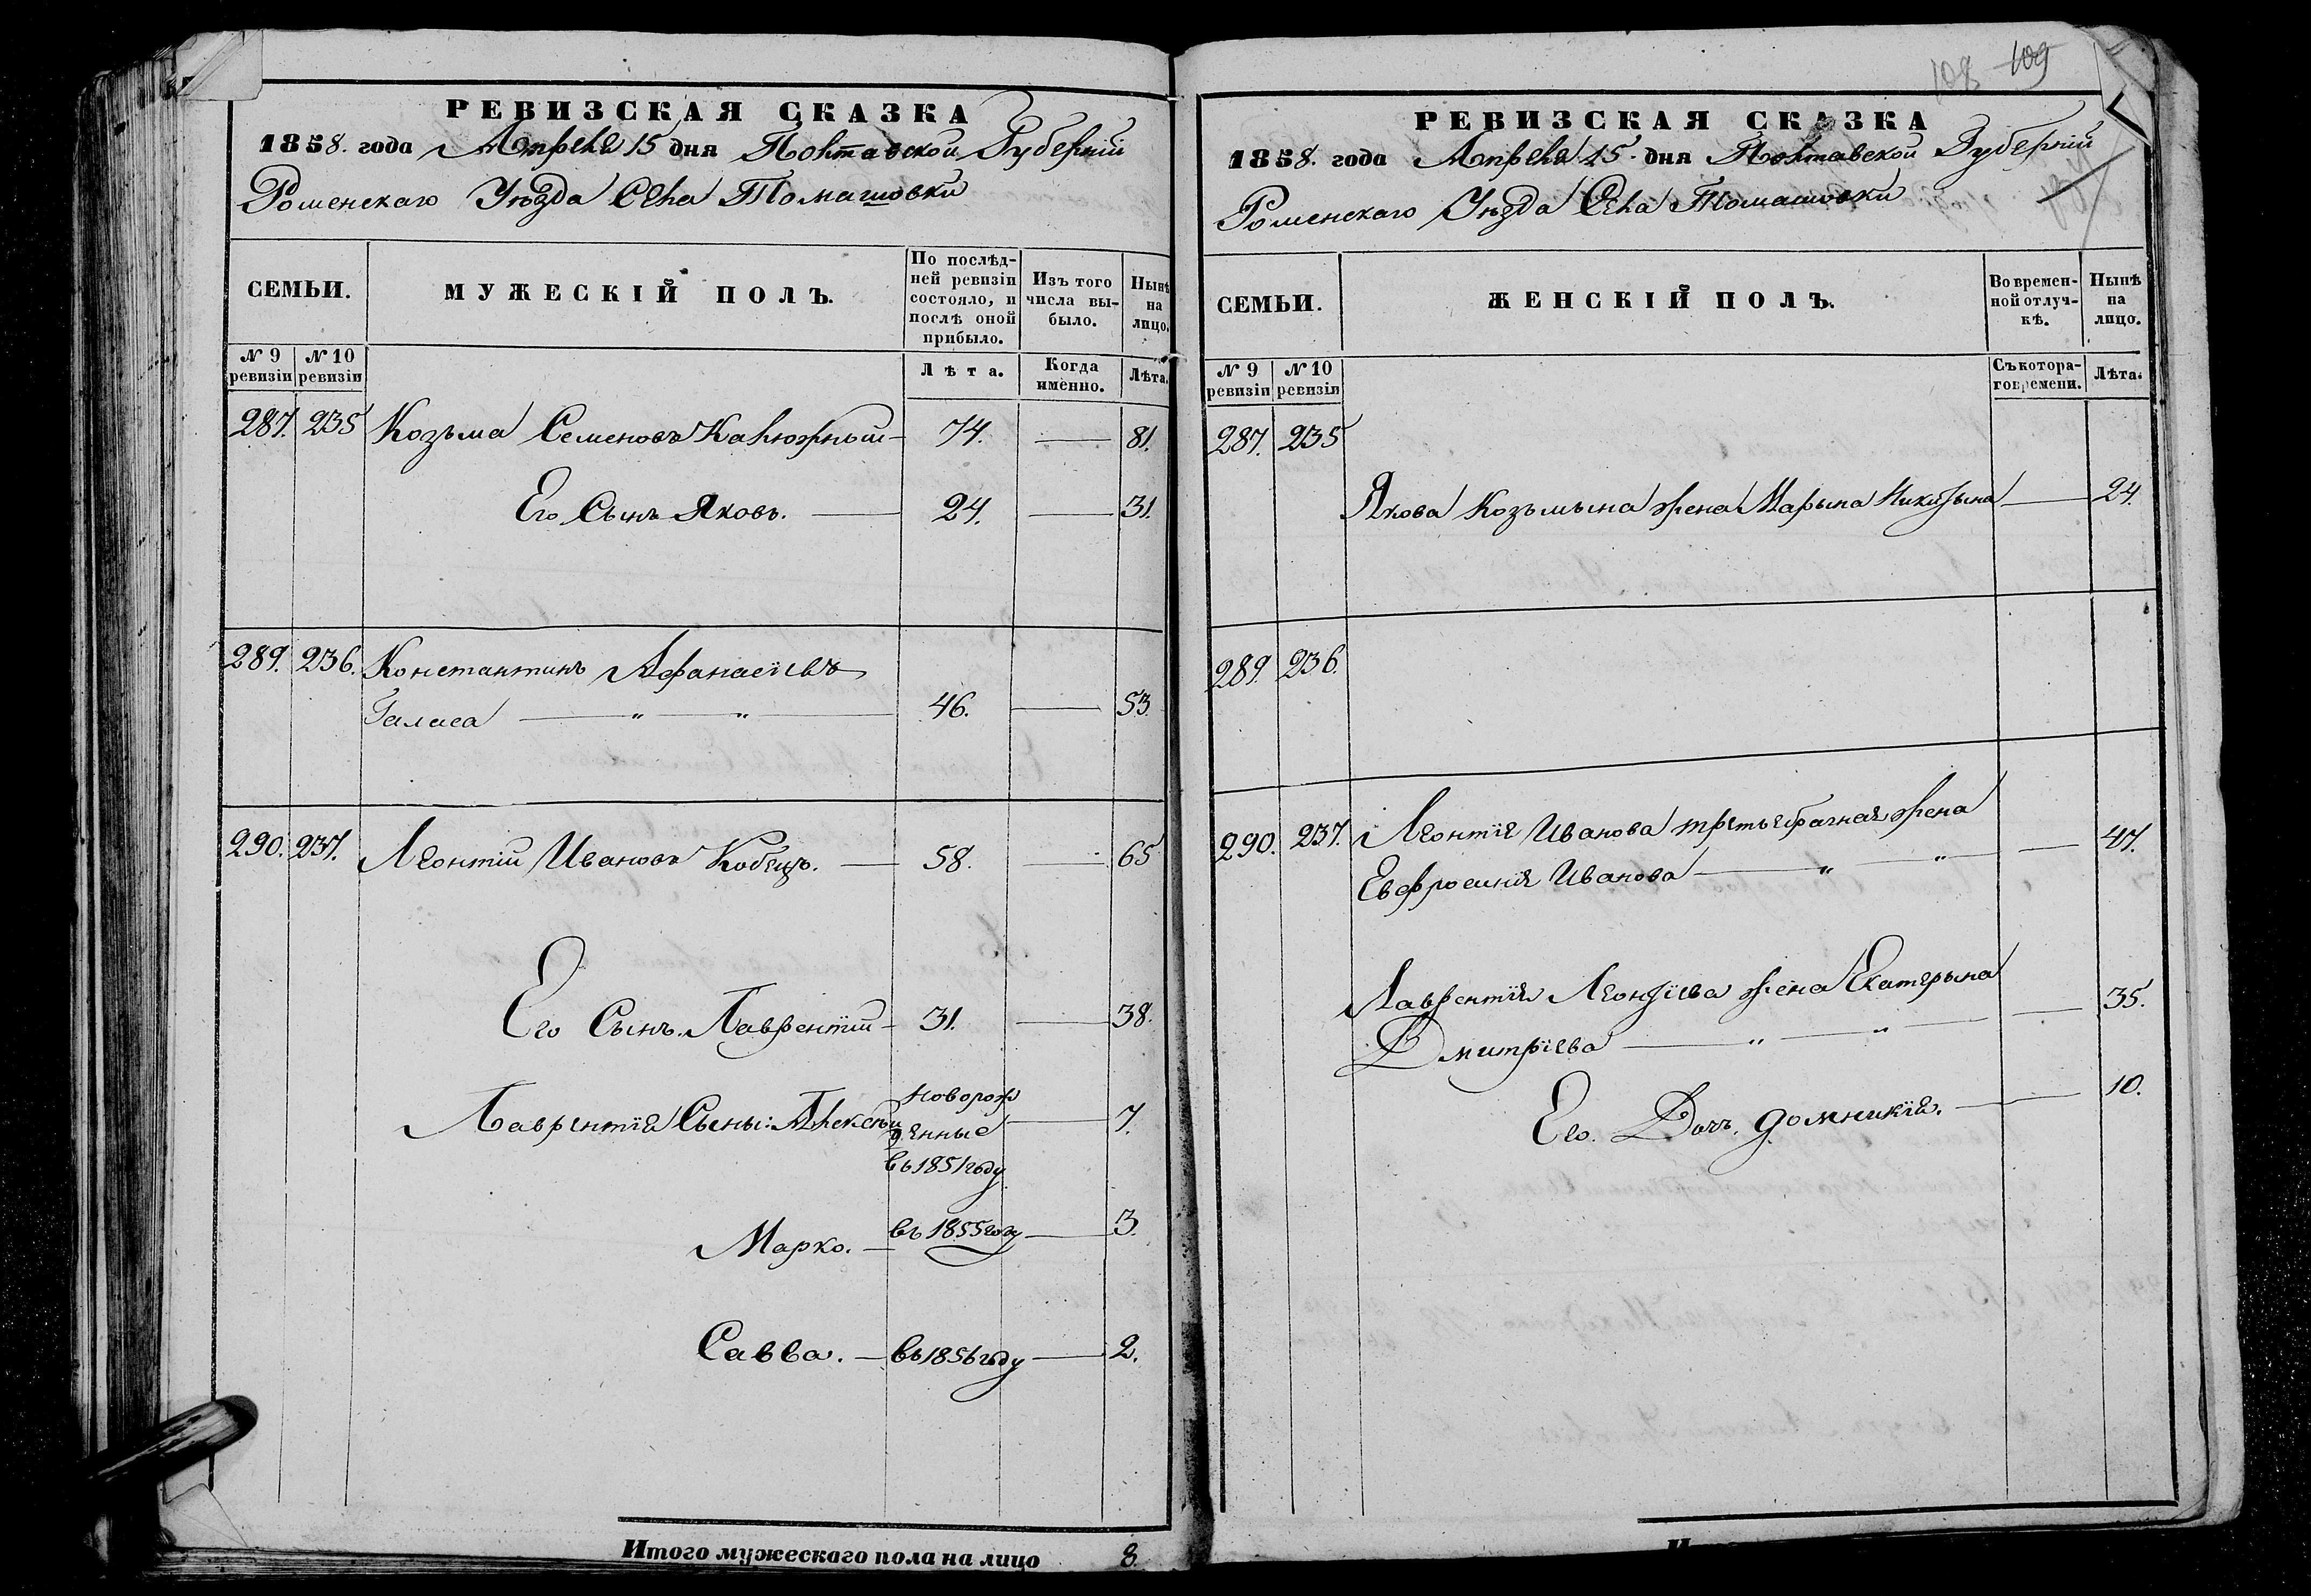 РЕВИЗСКАЯ СКАЗКА
1858. года Апреля 15 дня Полтавской Губерній
Роменскаго Уѣзда Села Томашовки
СЕМЬИ.
МУЖЕСКІЙ ПОЛЪ.
По послѣд-
ней ревизіи
состояло, и
послѣ оной
прибыло.
Изъ того
числа вы-
было.
Нынѣ
на
лицо.
№ 9 ревизіи
№ 10 ревизіи
Лѣта.
Когда
именно.
Лѣта.
287. 235 Козьма Семеновъ Калюжный 74. 81.
Его Сынъ Яковъ. 24. 31.
289. 236. Константинъ Афанасіевъ
Галаса 46. 53
290. 237. Леонтій Ивановъ Кобецъ. 58. 65
Его Сынъ Лаврентій 31. 38.
Лаврентія Сыны: Алексѣй новорож
денные 7.
въ 1851 году
Марко. въ 1855 году 3.
Савва. въ 1856 году 2.
Итого мужескаго пола на лицо 8
108 109
РЕВИЗСКАЯ СКАЗКА
1858. года Апреля 15. дня Полтавской Губерній
Роменскаго Уѣзда Села Томашовки
СЕМЬИ.
ЖЕНСКІЙ ПОЛЪ.
Во времен-
ной отлуч-
кѣ.
Нынѣ
на
лицо.
№ 9 ревизіи
№ 10 ревизіи
Съ котора-
го времени.
Лѣта.
287. 235
Якова Козьмына жена Марына Никитына 24.
289. 236.
290. 237. Леонтія Иванова третьебрачная жена
Евфросинія Иванова 47.
Лаврентія Леонтіева жена Екатерына
Дмитріева 35.
Его. Дочь. Домникія. 10.